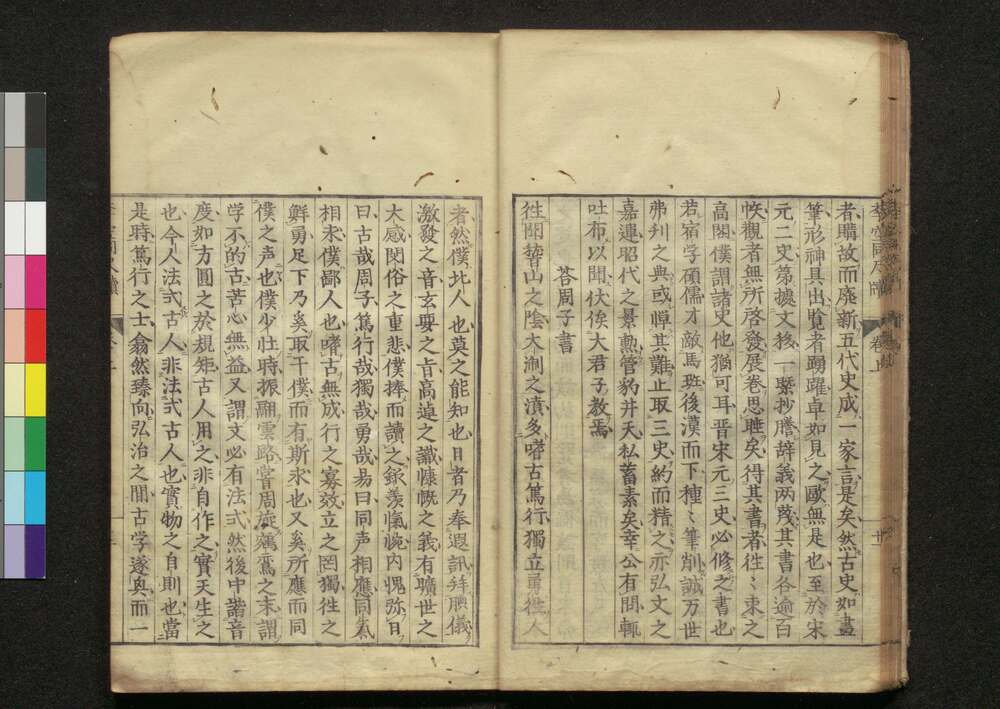 李空同尺牘 卷上 十一
者購故而廢新五代史成一家言是矣然古史如畫
筆形神具出覽者踴躍卓如見之歐無是也至於宋
元二史第據文移一槩抄謄辞義两蔑其書各逾百
帙觀者無所啓發展卷思睡矣得其書者往〻束之
高閣僕謂諸史他猶可耳晋宋元三史必修之書也
若宿学碩儒才敵馬班後漢而下種〻筆削誠万世
弗刋之典或憚其難止取三史約而精之亦弘文之
嘉運昭代之景勲管豹井天私蓄素矣幸公有問輙
吐布以聞伏俟大君子教焉
荅周子書
往聞山之陰大淛之濆多嗜古篤行獨立勇往人
者然僕北人也莫之能知也日者乃奉遐訊拜腆儀
激發之音玄要之旨高逴之識慷慨之義有曠世之
大感閔俗之重悲僕捧而讀之欽羨愾惋内愧弥日
曰古哉周子篤行哉獨哉勇哉易曰同声相應同氣
相求僕鄙人也嗜古無成行之寡效立之罔獨往之
鮮勇足下乃奚取干僕而有斯求也又奚所應而同
僕之声也僕少壮時振翮雲路嘗周旋鵷鸞之末謂
学不的古苦心無益又謂文必有法式然後中諧音
度如方圓之於規矩古人用之非自作之實天生之
也今人法式古人非法式古人也實物之自則也當
是時篤行之士翕然臻向弘治之間古学遂興而一